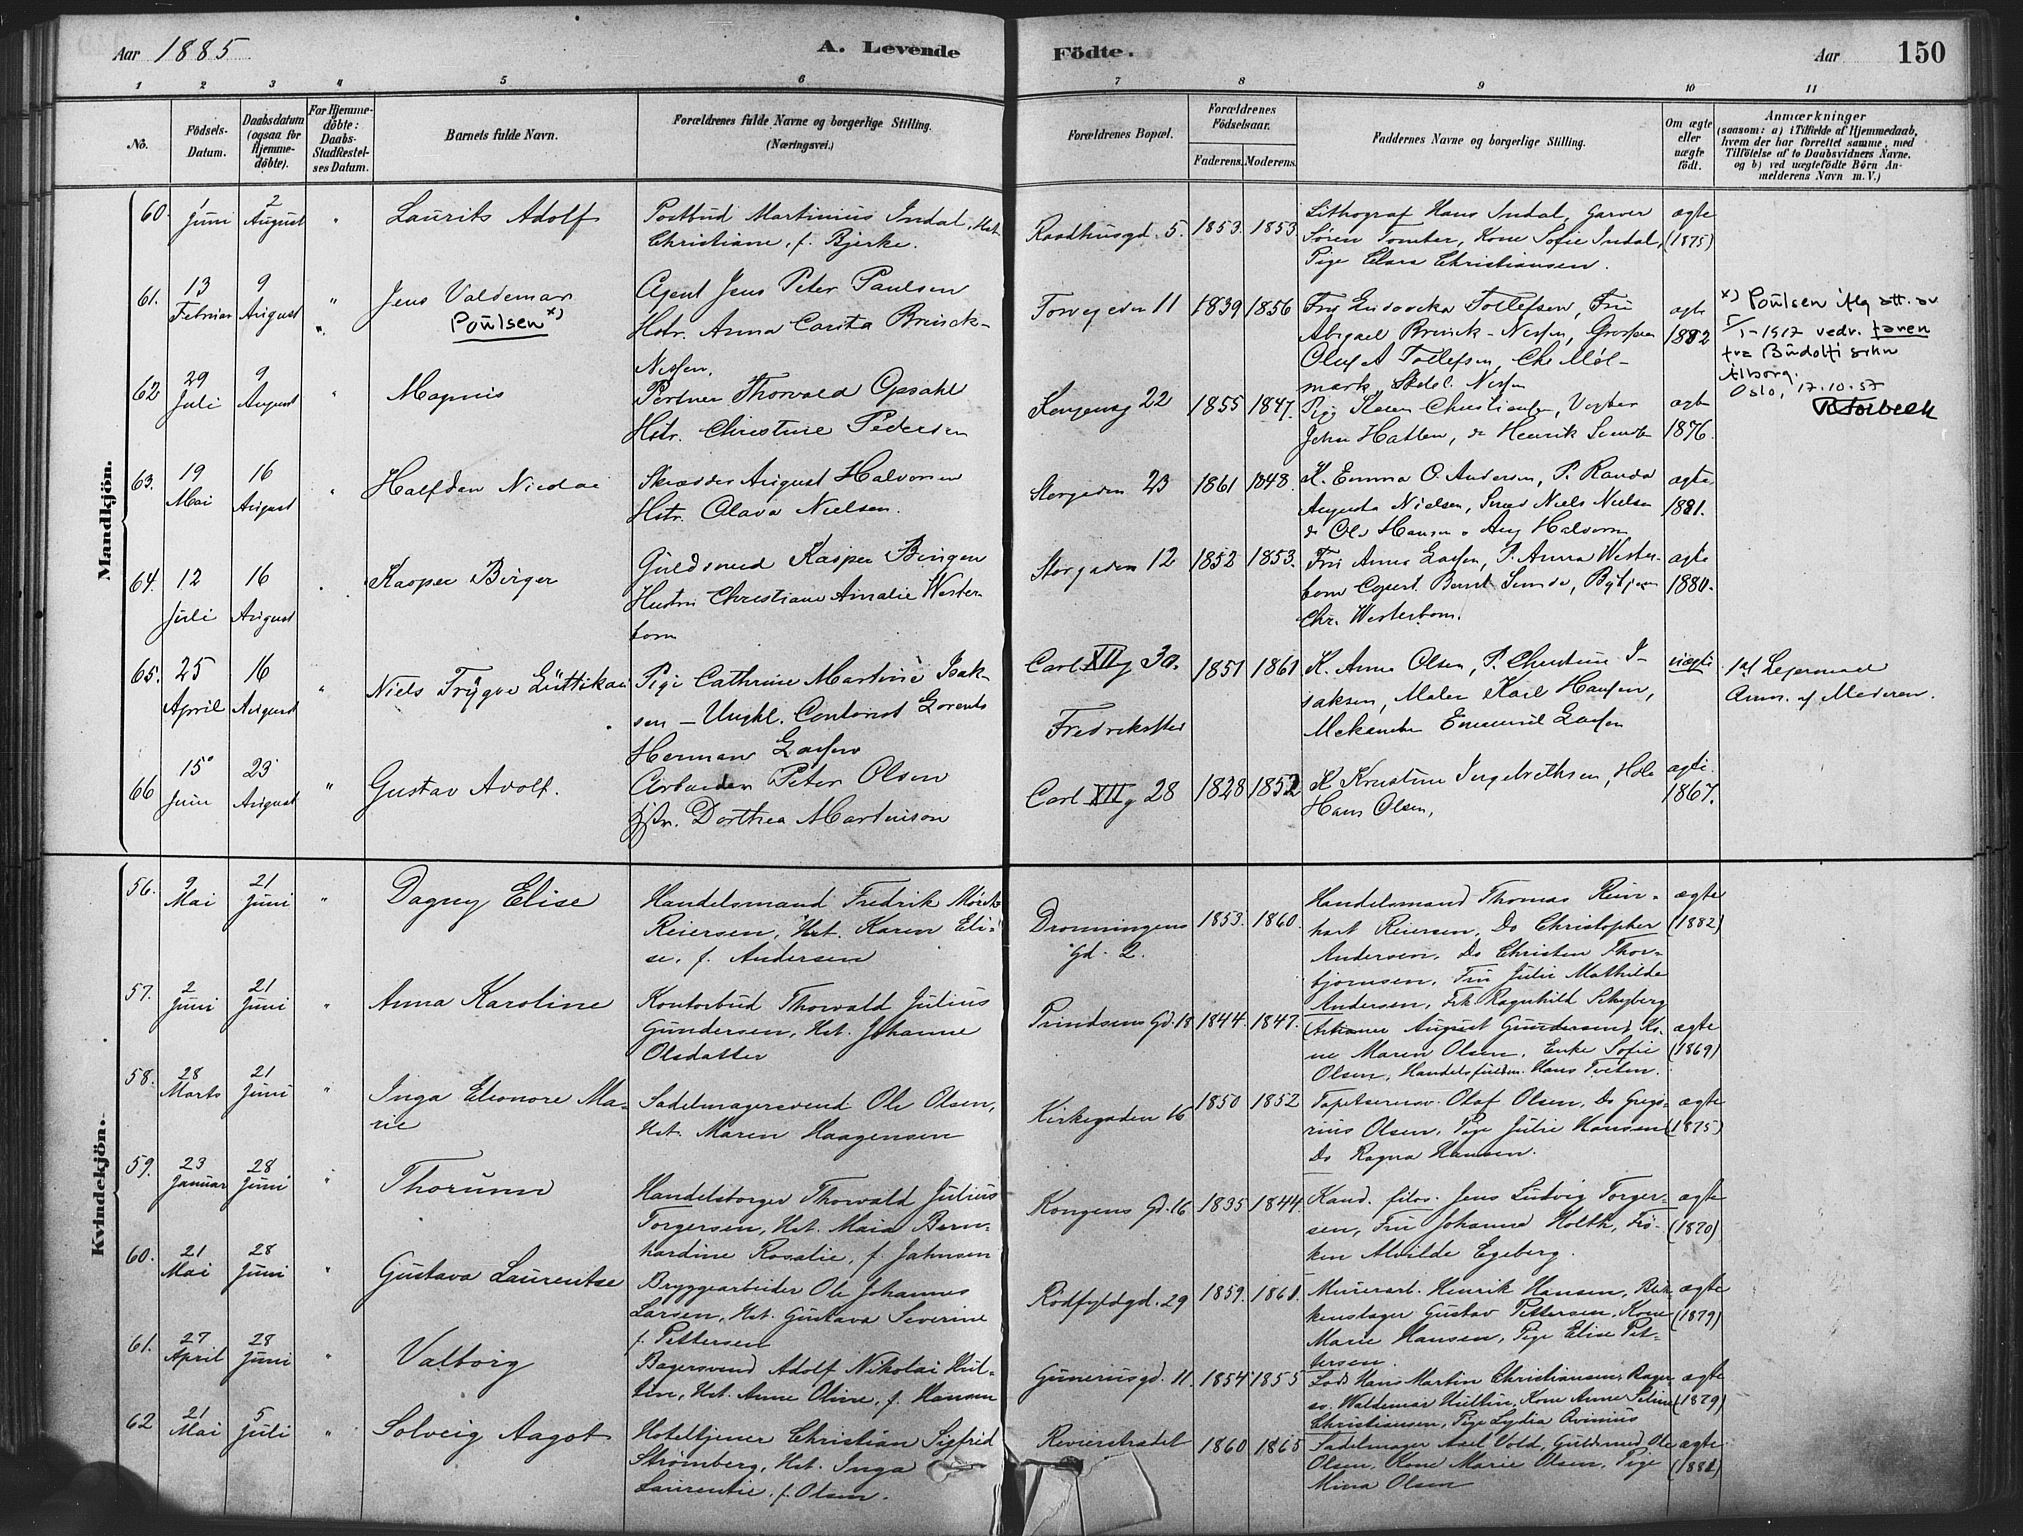 Aar 1885
A. Levende
Födte.
Aar
150
1 2 3 4 5 6 7 8 9 10 11
No.
Födsels-
Datum.
Daabsdatum
(ogsaa for
Hjemme-
döbte).
For Hjemme-
döbte:
Daabs-
Stadfæstel-
ses Datum.
Barnets fulde Navn.
Forældrenes fulde Navne og borgerlige Stilling.
(Næringsvei.)
Forældrenes Bopæl.
Forældrenes
Födselsaar.
Faderens. Moderens.
Faddernes Navne og borgerlige Stilling.
Om ægte
eller
uægte
födt.
Anmærkninger
(saasom: a) i Tilfælde af Hjemmedaab,
hvem der har forrettet samme, med
Tilföielse af to Daabsvidners Navne.
og b) ved uægtefödte Börn An-
melderens Navn m. V.)
Mandkjön.
60. 1 Juni 2 August " Laurits Adolf
Postbud Martinius Indal, Hst.
Christiane, f. Bjerke.
Raadhusgd. 5. 1853. 1853
Lithograf Hans Indal, Garver
Søren Tomter, Kone Sofie Indal,
Pige Clara Christiansen.
ægte
(1875)
61. 13 Februar 9 August " Jens Valdemar
Poulsen x)
Agent Jens Peter Paulsen
Hstr. Anna Carita Brinck-
Nissen,
Torvgaden 11 1839 1856
Tollefsen, Fru
Abigael Brinck-Nissen,
Oluf A Tollefsen,
ægte
1882
x) Poulsen iflg att. av
1-1917 vedr. faren
fra Budolfi sokn
Ålborg.
Oslo, 17.10.57
62 29 Juli 9 August " Magnus
Portner Thorvald Opsahl
Hstr. Christine Pedersen
Kongensg 22 1855 1847.
Pige Karen Christiansen, Vogter
John Hatlen, do Henrik
ægte
1876.
63. 19 Mai 16 August " Halfdan Nicolai
Skrædder August Halvorsen
Hstr. Olava Nielsen.
Storgaden 23 1861 1848
K. Emma O. Andersen, P. Randa
Augusta Nielsen, Niels Nielsen
do Ole Hansen, Aug Halvorsen
ægte
1881.
64. 12 Juli 16 August . Kasper Birger
Guldsmed Kasper Bingen
Hustru Christiane Amalie Wester-
bom
Storgaden 12 1852 1853.
Fru Anna Larsen, P. Anna Wester-
bom Bernt
Chr. Westerbom.
ægte
1880.
65. 25 April 16 August " Niels Trygve
Pige Cathrine Martine Isak-
sen — Ungkl. Contorist Lorents
Herman Larsen
Carl XII g 30.
Fredrikshald
1851 1861
K. Anna Olsen, P. Christine I-
saksen, Maler Karl Hansen,
Emanuel Larsen
uægte
1ste Leiermaal
Anm. af Moderen.
66 15 Juni 23 August " Gustav Adolf.
Arbeider Peter Olsen
Hstr. Dorthea Martinson
Carl XII g 28 1828 1852
K Kristine Ingebrethsen,
Hans Olsen,
ægte.
1867.
Kvindekjön.
56. 9 Mai 21 Juni " Dagny Elise
Handelsmand Fredrik Mørch
Reiersen, Hst. Karen Eli-
se, f. Andersen
Dronningens
Gd. 2.
1853. 1860.
Handelsmand Thomas Rein-
hart Reiersen, Do Christopher
Andersen, Do Christen Thor-
bjørnsen, Fru Julie Mathilde
Andersen, Frk. Ragnhild Schyberg
ægte
(1882)
57. 2 Juni 21 Juni " Anna Karoline
Kontorbud Thorvald Julius
Gundersen, Hst. Johanne
Olsdatter
Prindsens Gd. 18 1844. 1847.
August Gundersen, Ko-
ne Maren Olsen, Enke Sofie
Olsen, Handelsfuldm. Hans Tveten.
ægte
(1869)
58. 28 Marts 21 Juni " Inga Eleonore Ma-
rie
Sadelmagersvend Ole Olsen,
Hst. Maren Haagensen
Kirkegaden 16 1850 1852
Tapetserersv. Olaf Olsen, Do Grego-
rius Olsen, Pige Julie Hansen
Do Ragna Hansen.
ægte
(1875)
59. 23 Januar 28 Juni " Thorunn
Handelsborger Thorvald Julius
Torgersen, Hst. Maia Bern-
hardine Rosalie, f. Jahnsen
Kongens Gd. 16 1835 1844.
Kand. filos. Jens Ludvig Torger-
sen, Fru Johanna Holth, Frø-
ken Alvilde Egeberg.
ægte
(1870)
60. 21 Mai 28 Juni " Gustava Laurentse
Bryggearbeider Ole Johannes
Larsen, Hst. Gustava Severine
f. Pettersen
Rødfyldgd. 29 1859. 1861.
Murerarb. Henrik Hansen, Blik-
kenslager Gustav Pettersen, Kone
Marie Hansen, Pige Elise Pet-
tersen.
ægte
(1879)
61. 27 April 28 Juni " Valborg
Bagersvend Adolf Nikolai Hul-
tin, Hst. Anne Oline, f. Hansen
Gunerius gd. 11. 1854 1855
Lods Hans Martin Christiansen, Bager
sv. Waldemar Hultin, Kone Anne Seline
Christiansen, Pige Lydia
ægte
(1879)
62 21 Mai 5 Juli " Solveig Aagot
Hoteltjener Christian Sigfrid
Strømberg, Hst. Inga
Laurentie, f. Olsen.
Revierstrædet 1860 1865
Sadelmager Axel Vold, Guldsmed Ole
Olsen, Kone Marie Olsen, Pige
Mina Olsen
ægte
(1881)